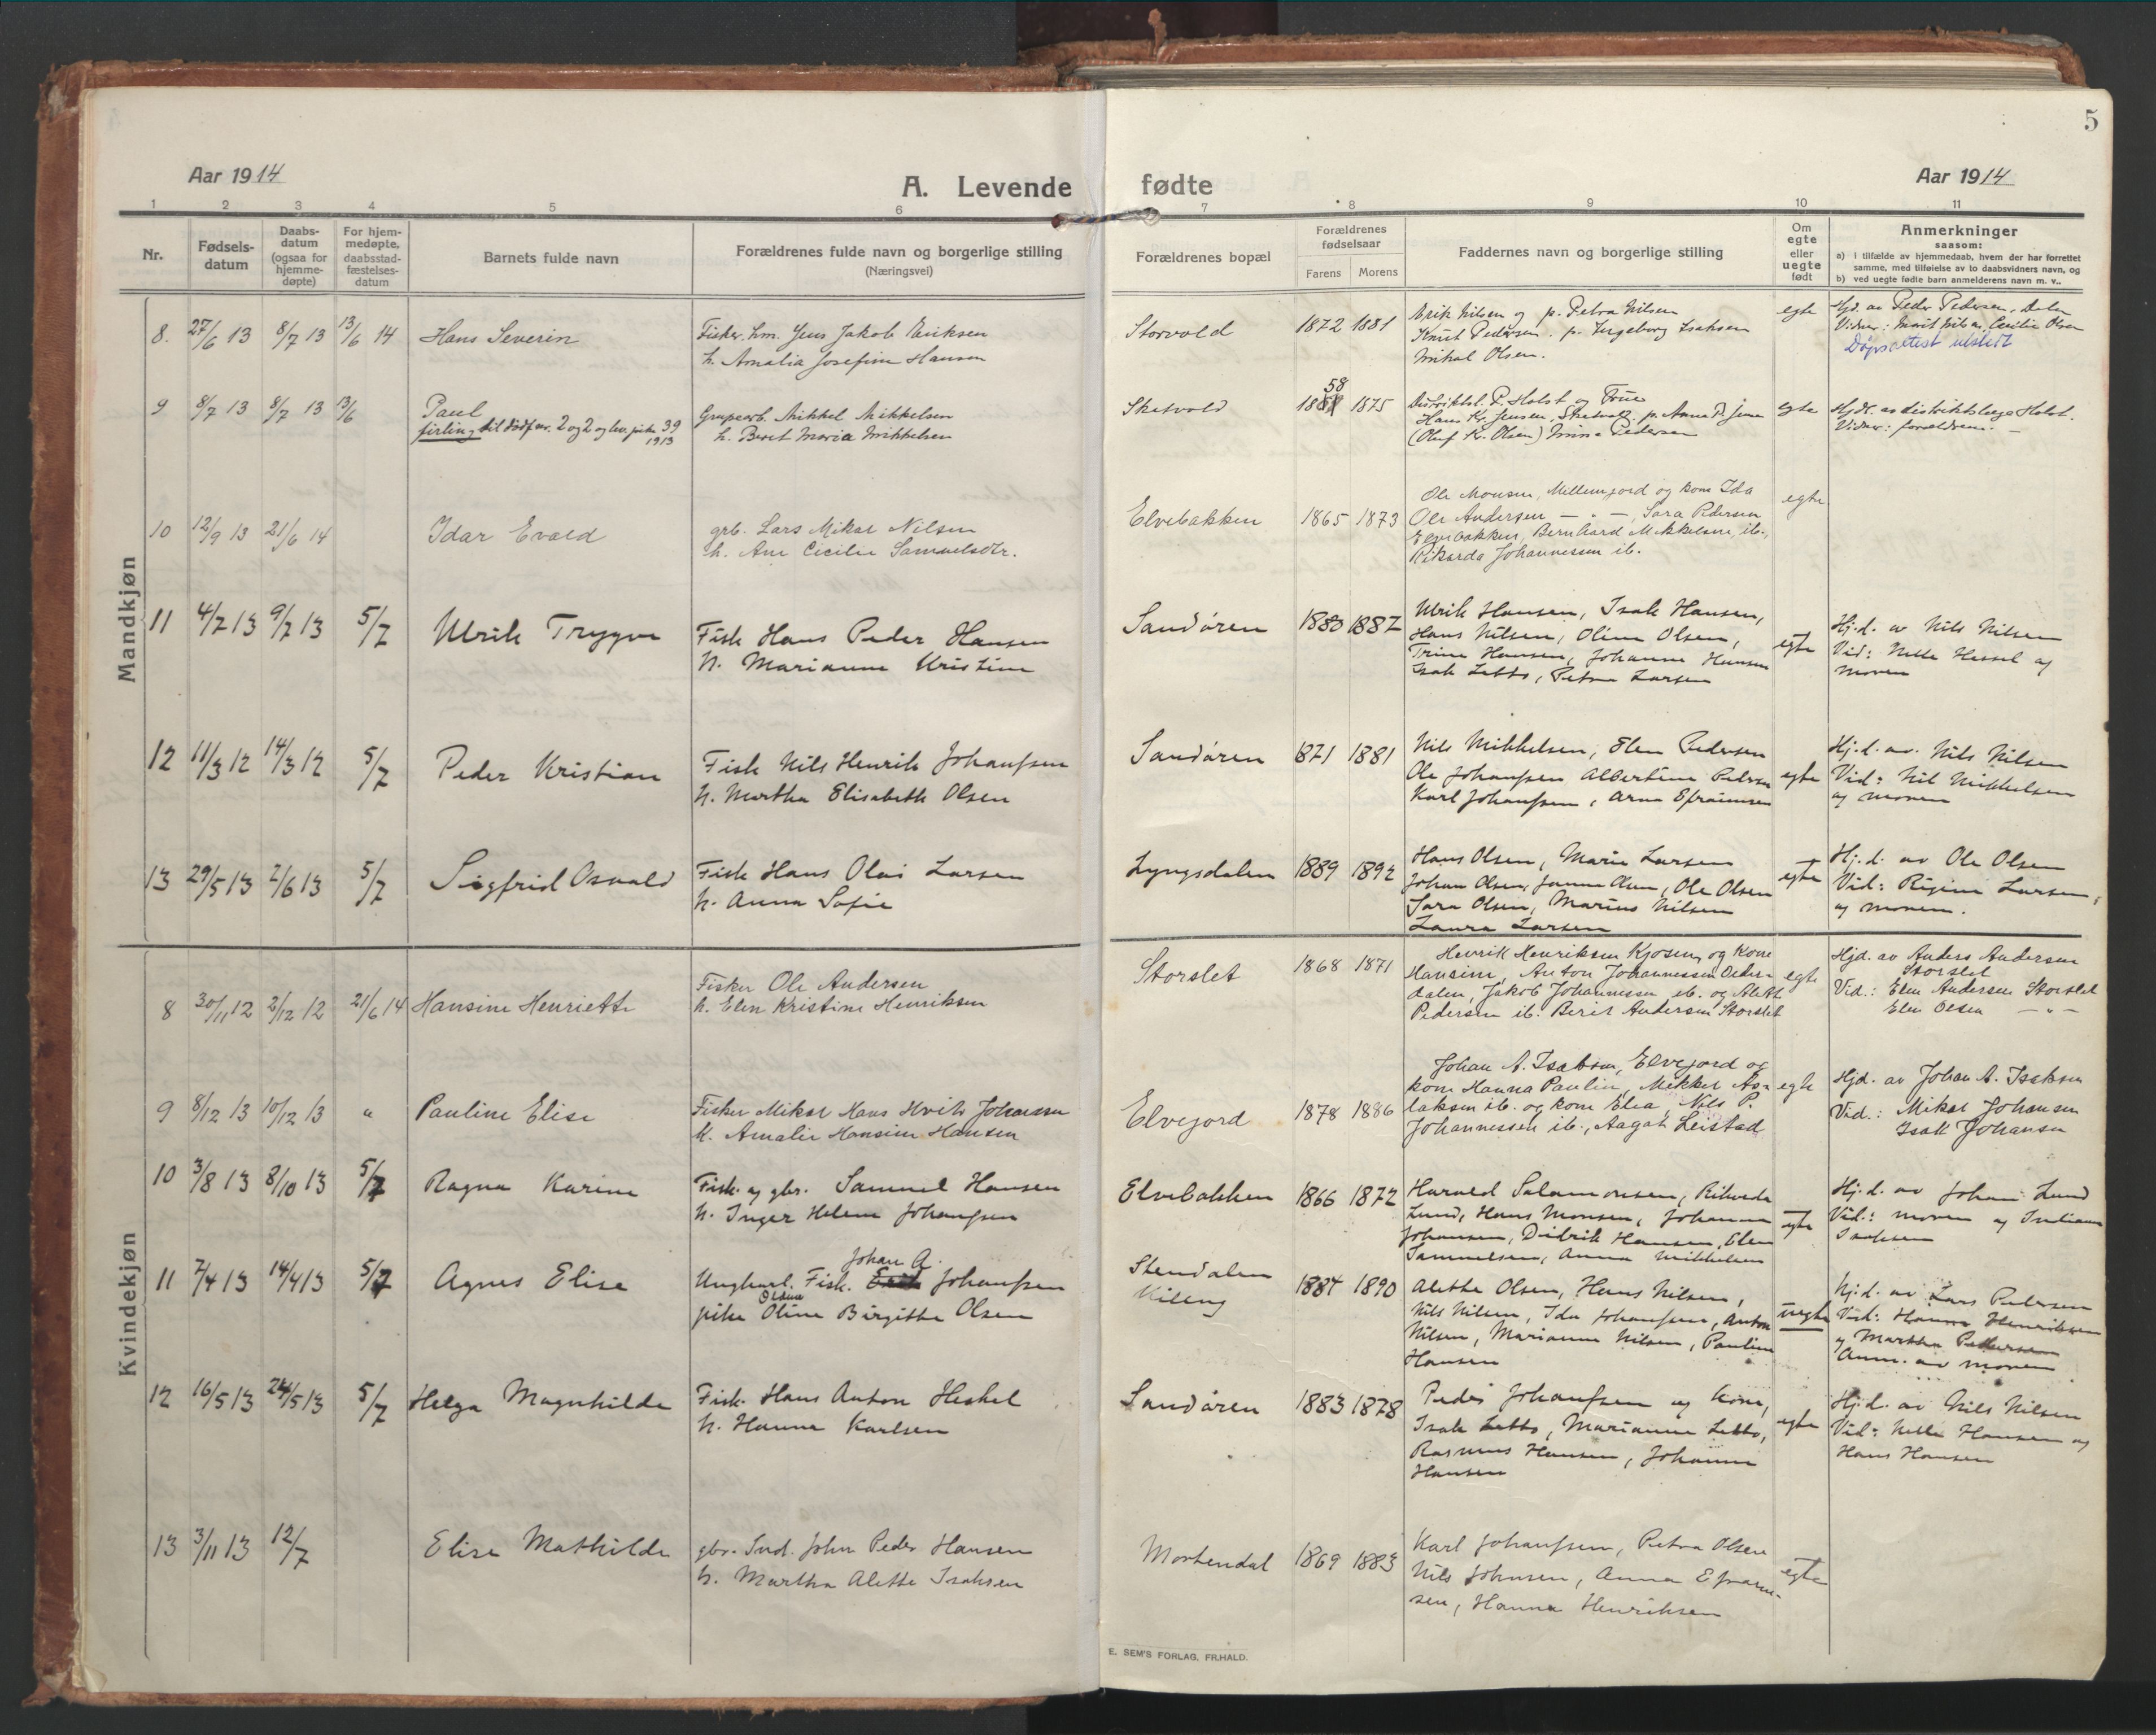 5
Aar 1914
A. Levende fødte
Aar 1914
1 2 3 4 5 6 7 8 9 10 11
Nr.
Fødsels-
datum
Daabs-
datum
(ogsaa for
hjemme-
døpte)
For hjem-
medøpte,
daabsstad-
fæstelses-
datum
Barnets fulde navn
Forældrenes fulde navn og borgerlige stilling
(Næringsvei)
Forældrenes bopæl
Forældrenes
fødselsaar
Farens Morens
Faddernes navn og borgerlige stilling
Om
egte
eller
uegte
født
Anmerkninger
saasom:
a) i tilfælde av hjemmedaab, hvem der har forrettet
samme, med tilføielse av to daabsvidners navn, og
b) ved uegte fødte barn anmelderens navn m. v..
Mandkjøn
8. 27/6 13 8/7 13 13/6 14 Hans Severin
Fisker, hm. Jens Jakob Eriksen
h. Amalia Josefine Hansen
Storvold 1872 1881
Erik Nilsen og p. Petra Nilsen
Knut Pedersen. p. Ingeborg Isaksen
Mikal Olsen.
egte
Hjd. av Peder Pedersen, Dalen
Vidner: Marit Nilsen, Cecilie Olsen
Døpsattest utstedt
9 8/7 13 8/7 13 13/6 Paul
firling til dødf. nr. 2 og 2 og lev. pike 39
1913
Grupearb. Mikkel Mikkelsen
h. Beret Maria Mikkelsen
Skatvold 58 1875
Distriktsl. P. Holst og Frue
Hans Kr. Jensen, Skatvold, p. Anna P. Jensen
(Oluf K. Olsen) Pedersen
egte
Hjdt. av distriktslæge Holst.
Vidner: forældrene.
10 12/9 13 21/6 14 Idar Evald
grb. Lars Mikal Nilsen
h. Ane Cicilie Samuelsdtr.
Elvebakken 1865 1873
Ole Monsen, Mellemjord og kone Ida
Ole Andersen — " —, Sara Pedersen
Elvebakken, Bernhard Mikkelsen, ib.,
Rikarda Johannessen ib.
egte
11 4/7 13 9/7 13 5/7 Ulrik Trygve
Fisk Hans Peder Hansen
h. Marianne Kristine
Sandøren 1880 1887
Ulrik Hansen, Isak Hansen,
Hans Nilsen, Oline Olsen,
Trine Hansen, Johanne Hansen
Isak Letto, Petra Larsen
egte
Hj.d. av Nils Nilsen
Vid: Nille Heskel og
moren
12 11/3 12 14/3 12 5/7 Peder Kristian
Fisk Nils Henrik Johansen
h. Martha Elisabeth Olsen
Sandøren 1871 1881
Nils Mikkelsen, Elen Pedersen
Ole Johansen Albertine Pedersen
Karl Johansen, Arne Efraimsen
egte
Hj.d. av. Nils Nilsen
Vid: Nil Mikkelsen
og moren
13 29/5 13 2/6 13 5/7 Sigfrid Osvald
Fisk Hans Olai Larsen
h. Anna Sofie
Lyngsdalen 1889 1892
Hans Olsen, Marie Larsen
Johan Olsen, Janna Olsen, Ole Olsen
Sara Olsen, Marius Nilsen
Laura Larsen
egte
Hj.d. av Ole Olsen
Vid: Regine Larsen,
og moren.
Kvindekjøn
8 30/11 12 2/12 12 21/6 14 Hansine Henriette
Fisker Ole Andersen
h. Elen Kristine Henriksen
Storslet 1868 1871
Henrik Henriksen Kjosen, og kone
Hansine, Anton Johannessen Oeder-
dalen, Jakob Johannessen ib. og Alette
Pedersen ib. Berit Andersen Storslet
egte
Hjd. av Anders Andersen
Storslet
Vid.: Elen Andersen Storslet
Elen Olsen — " —
9 8/12 13 10/12 13 " Pauline Elise
Fisker Mikal Hans Hvik Johansen
h. Amalie Hansine Hansen
Elvejord 1878 1886
Johan A. Isaksen, Elvejord og
kone Hanna Pauline, Mikkel As-
laksen ib. og kone Elea, Nils P.
Johannessen ib., Aagat Leistad
egte
Hjd. av Johan A. Isaksen
Vid.: Mikal Johansen
Isak Johansen
10 3/8 13 8/10 13 5/7 Ragna Karine
Fisk. og gbr. Samuel Hansen
h. Inger Helene Johansen
Elvebakken 1866 1872
Harald Salamonsen, Rikarda
Lund, Hans Monsen, Johanna
Johansen, Didrik Hansen, Elen
Sammelsen, Anna Mikkelsen
egte
Hj.d. av Johan Lund
Vid.: moren og Indiane
Isaksen
11 7/4 13 14/4 13 5/7 Agnes Elise
Johan A.
Ungkarl. Fisk. Erik Johansen
pike Oline Birgitte Olsen
Stendalen
1884 1890
Alette Olsen, Hans Nilsen,
Nils Nilsen, Ida Johansen, Anton
Nilsen, Marianne Nilsen, Pauline
Hansen
uegte
Hj.d. av Lars Pedersen
Vid: Hanna Henriksen
og Martha Pedersen
Anm. av moren
12 16/5 13 24/5 13 5/7 Helga Magnhilde
Fisk. Hans Anton Heskel
h. Hanna Karlsen
Sandøren 1883 1878
Peder Johansen og kone,
Isak Letto, Marianne Letto,
Rasmus Hansen, Johanne
Hansen
egte
Hj.d. av Nils Nilsen
Vid: Nille Hansen og
Hans Hansen
13 3/11 13 12/7 Elise Mathilde
gbr. Ind. John Peder Hansen
h. Martha Alette Isaksen
Mortendal 1869 1883
Karl Johansen, Petra Olsen
Nils Johnsen, Anna Efraim-
sen, Hanna Henriksen
egte
E. SEM'S FORLAG, FR.HALD.